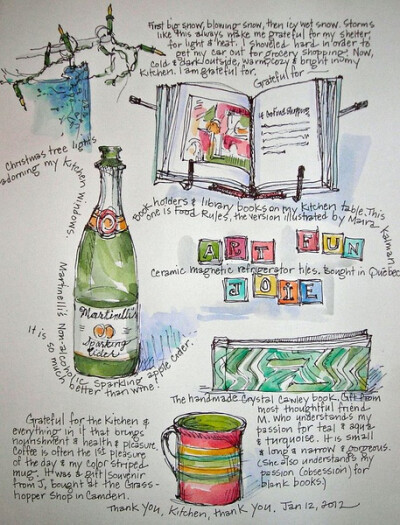 First big snow, blowing snow, then icy wet snow. Storms
like this always make me grateful for my shelter,
for light & heat. I shoveled hard in order to
get my car out for grocery shopping. Now,
cold & dark outside, warm, cozy & bright in my
kitchen. I am grateful for.
Grateful for
Christmas tree lights
adorning my kitchen windows.
Book holders & library books on my kitchen table. This
one is Food Rules, the version illustrated by Maira Kalman
ART FUN
Ceramic magnetic refrigerator tiles. Bought in Québec
JOIE
Martinelli's
Sparkling
Cider
Martinelli's Non-alcoholic sparkling apple cider...
It is so much better than wine!
The handmade Crystal Cawley book. Gift from
most thoughtful friend
M. who understands my
passion for teal & aqua
& turquoise. It is small
& long & narrow & gorgeous.
(She also understands my
passion (obsession) for
blank books.)
Grateful for the Kitchen &
everything in it that brings
nourishment & health & pleasure.
Coffee is often the 1st pleasure
of the day & my color striped
mug. It was a gift/souvenir
from J, bought at the Grass-
hopper Shop in Camden.
Thank you, Kitchen, thank you. Jan 12, 2012